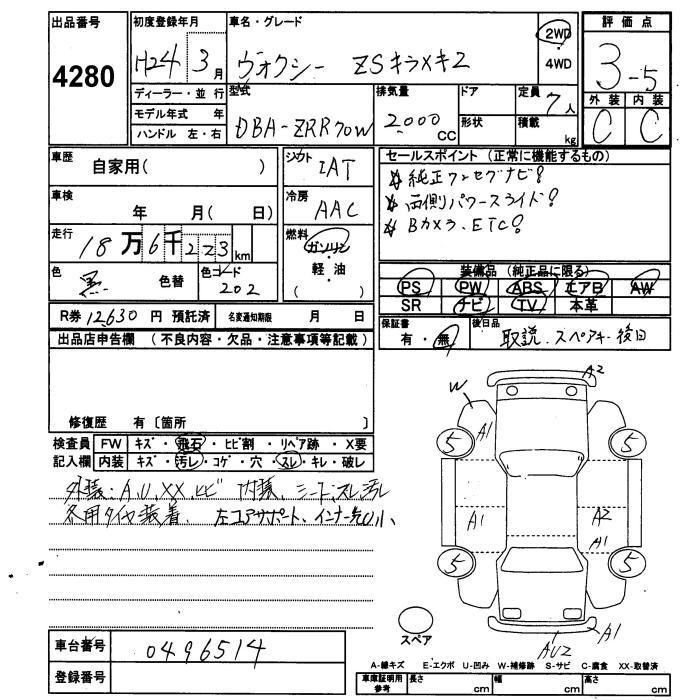 出品番号 初度登録年月 車名・グレード 評価点
4280 H24年3月 ヴォクシー ZSキラメキ2 2WD・4WD 3-5
ディーラー・並行 型式 排気量 ドア 定員 7人 外装 内装
モデル年式 年 DBA-ZRR70W 2000CC 形状 積載 kg C C
ハンドル 左・右
車歴 自家用( ) シフト IAT セールスポイント (正常に機能するもの)
車検 年 月( 日) 冷房 AAC 純正フルセグナビ!
両側パワースライド!
Bカメラ、ETC!
走行 18万6千223km 燃料 ガソリン・軽油 ( )
色 黒 色替 色コード 202 装備品 (純正品に限る)
PS PW ABS エアB AW
SR ナビ TV 本革
R券 12630円 預託済 名変通知期限 月 日 保証書 有・無 後日品 取説、スペアキー後日
出品店申告欄 (不良内容・欠品・注意事項等記載)
修復歴 有〔箇所 〕
検査員 FW キズ・飛石・ヒビ割・リペア跡・X要
記入欄 内装 キズ・汚レ・コゲ・穴・スレ・キレ・破レ
外装:A、U、XX、ヒビ 内装、シートスレ汚レ
冬用タイヤ装着、左コアサポート、インナー先U小、
A2
W
A1
5 5
A1 A2
A1
5 5
スペア
AU2 A1
車台番号 0496514
登録番号
A-線キズ E-エクボ U-凹み W-補修跡 S-サビ C-腐食 XX-取替済
車庫証明用参考 長さ cm 幅 cm 高さ cm